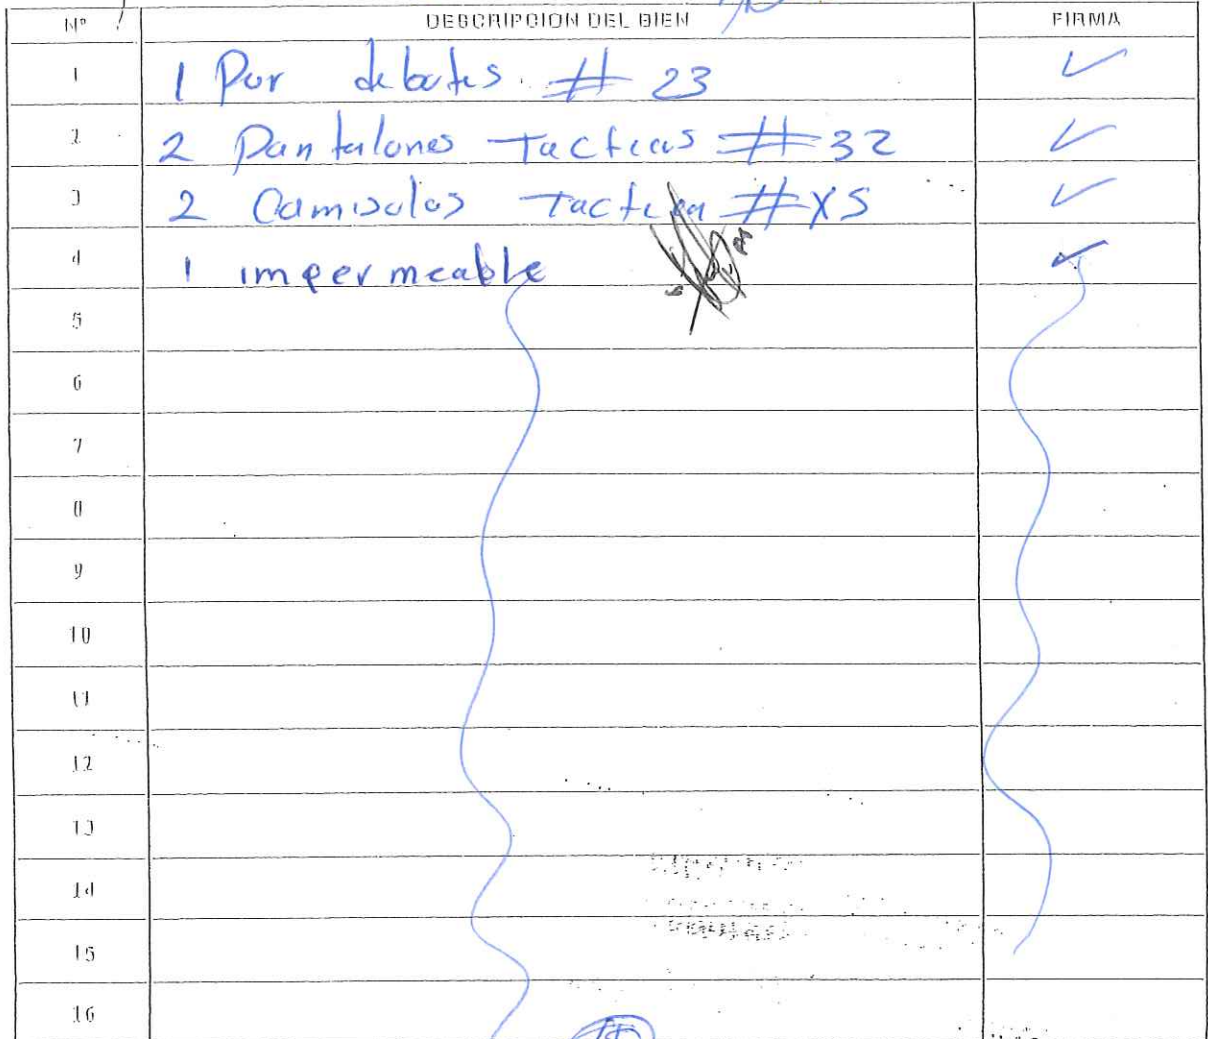 Nº DESCRIPCION DEL BIEN FIRMA
1 1 Par de botas. # 23 ✓
2 2 Pantalones Tacticos # 32 ✓
3 2 Camisolas Tactica # XS ✓
4 1 impermeable ✓
5
6
7
8
9
10
11
12
13
14
15
16